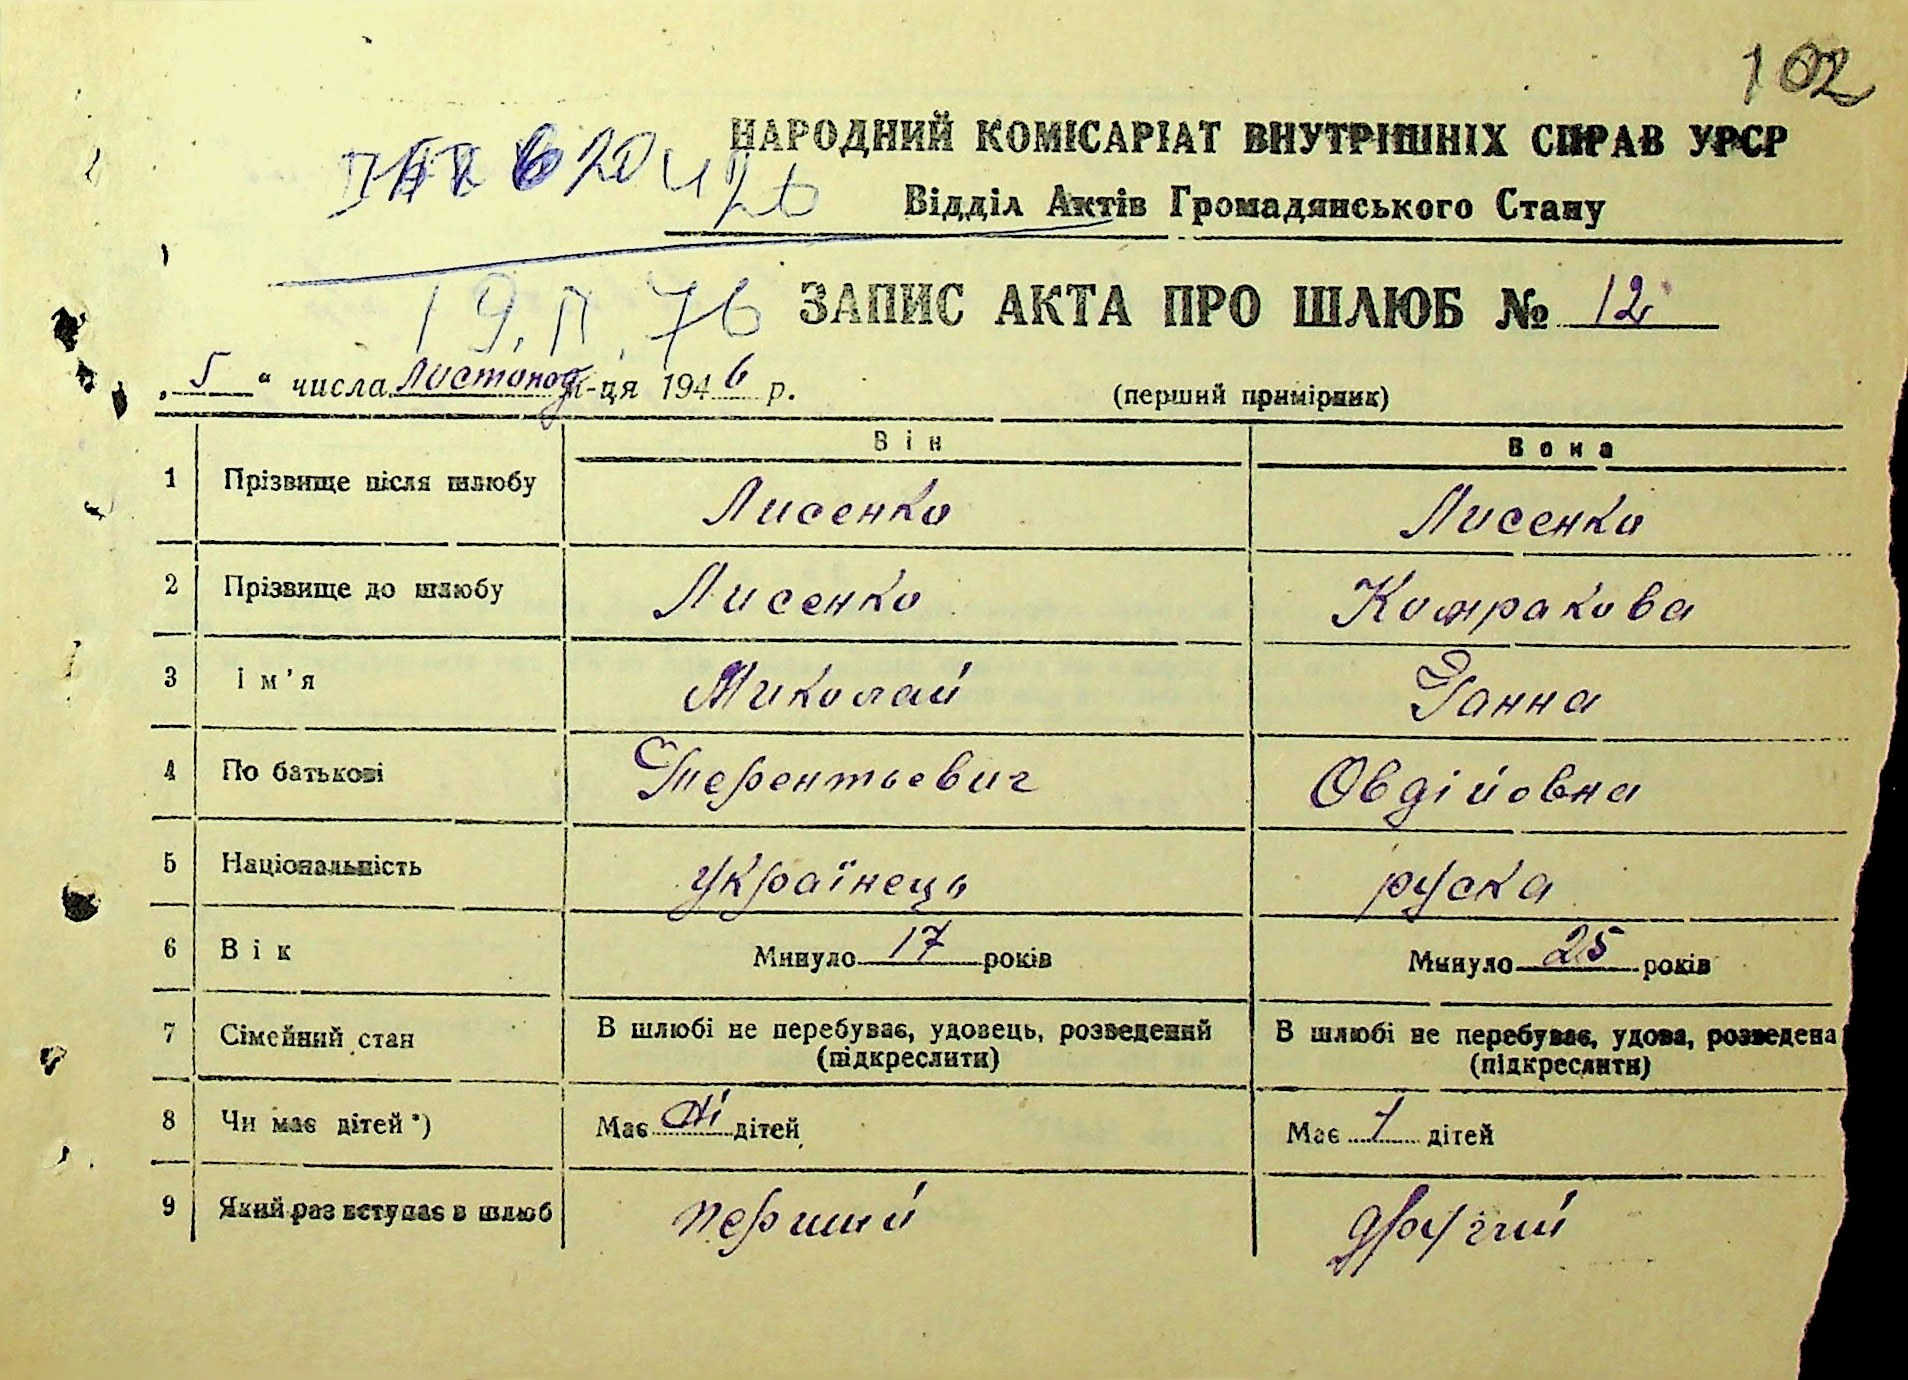 102
НАРОДНИЙ КОМІСАРІАТ ВНУТРІШНІХ СПРАВ УРСР
Відділ Актів Громадянського Стану
ЗАПИС АКТА ПРО ШЛЮБ № 12
„ 5 “ числа листопад м-ця 1946 р.
(перший примірник)
Він Вона
1 Прізвище після шлюбу Лисенко Лисенко
2 Прізвище до шлюбу Лисенко
3 Ім’я Миколай Ганна
4 По батькові Терентьевич Овдійовна
5 Національність українець руска
6 Вік Минуло 17 років Минуло 25 років
7 Сімейний стан В шлюбі не перебуває, удовець, розведений (підкреслити) В шлюбі не перебуває, удова, розведена (підкреслити)
8 Чи має дітей *) Має ні дітей Має 1 дітей
9 Який раз вступає в шлюб перший другий